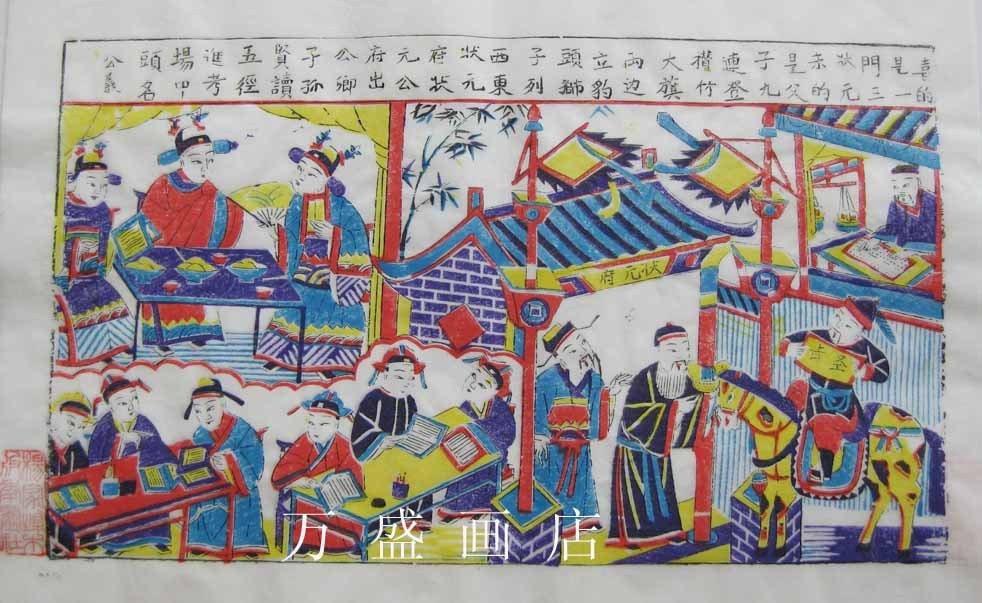 喜的
是一
門三
状元
的
是父
子九
連登
攅竹
大旗
両边
立豹
頭獅
子列
西東
状元
府状
元公
府出
公卿
子孫
賢讀
五径
進考
場中
頭名
公義
状元府
圣旨
万盛画店